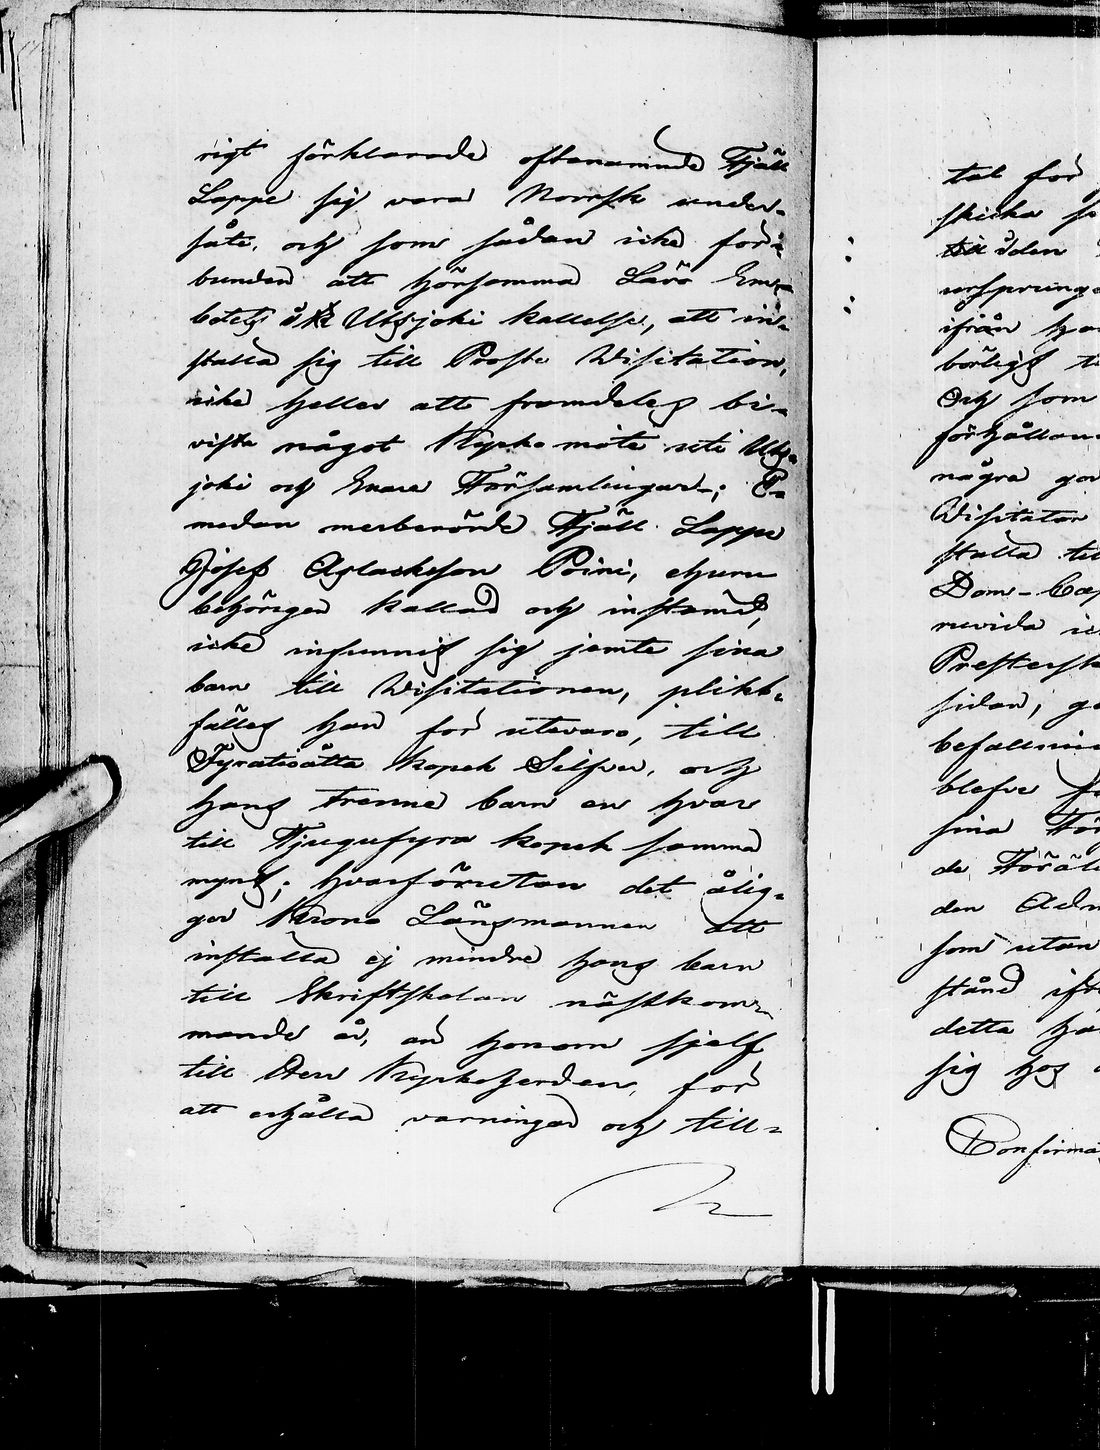 rigt förklarade oftanämnde Fjäll
Lappe sig vara Norrsk under-
såte, och som sådan icke för-
bunden att hörsamma Läro Em-
betets à Utsjoki kallelse, att in-
ställa sig till Prosta Visitation,
icke heller att framdeles bi-
vista något Kyrko möte uti Uts-
joki och Enare Församlingar; E-
medan merberörde Fjäll Lappe
Josef Aslackson Poini, ehuru
behörigen kallad och instämd,
icke infunnit sig jemte sina
barn till Visitationen, plikt-
fälles han för utevaro, till
Fyratioåtta kopek Silfver, och
hans trenne barn en hvar
till Tjugufyra kopek samma
mynt; hvarförutan det ålig-
ger Krono Länsmannen att
inställa ej mindre hans barn
till Skriftskolan nästkom-
mande år, än honom sjelf
till Kyrkoherden, för
att erhålla varningar och till-
tal för
skicka
till den
ursprung
ifrån
börligt
Och som
förhållan
några
Visitator
ställa till
Dom-Cap
Presterska
sidan,
befallnin
blefve
sina För
de Föräl
den Adm
som utan
stånd ifr
detta
sig hos
Confirma